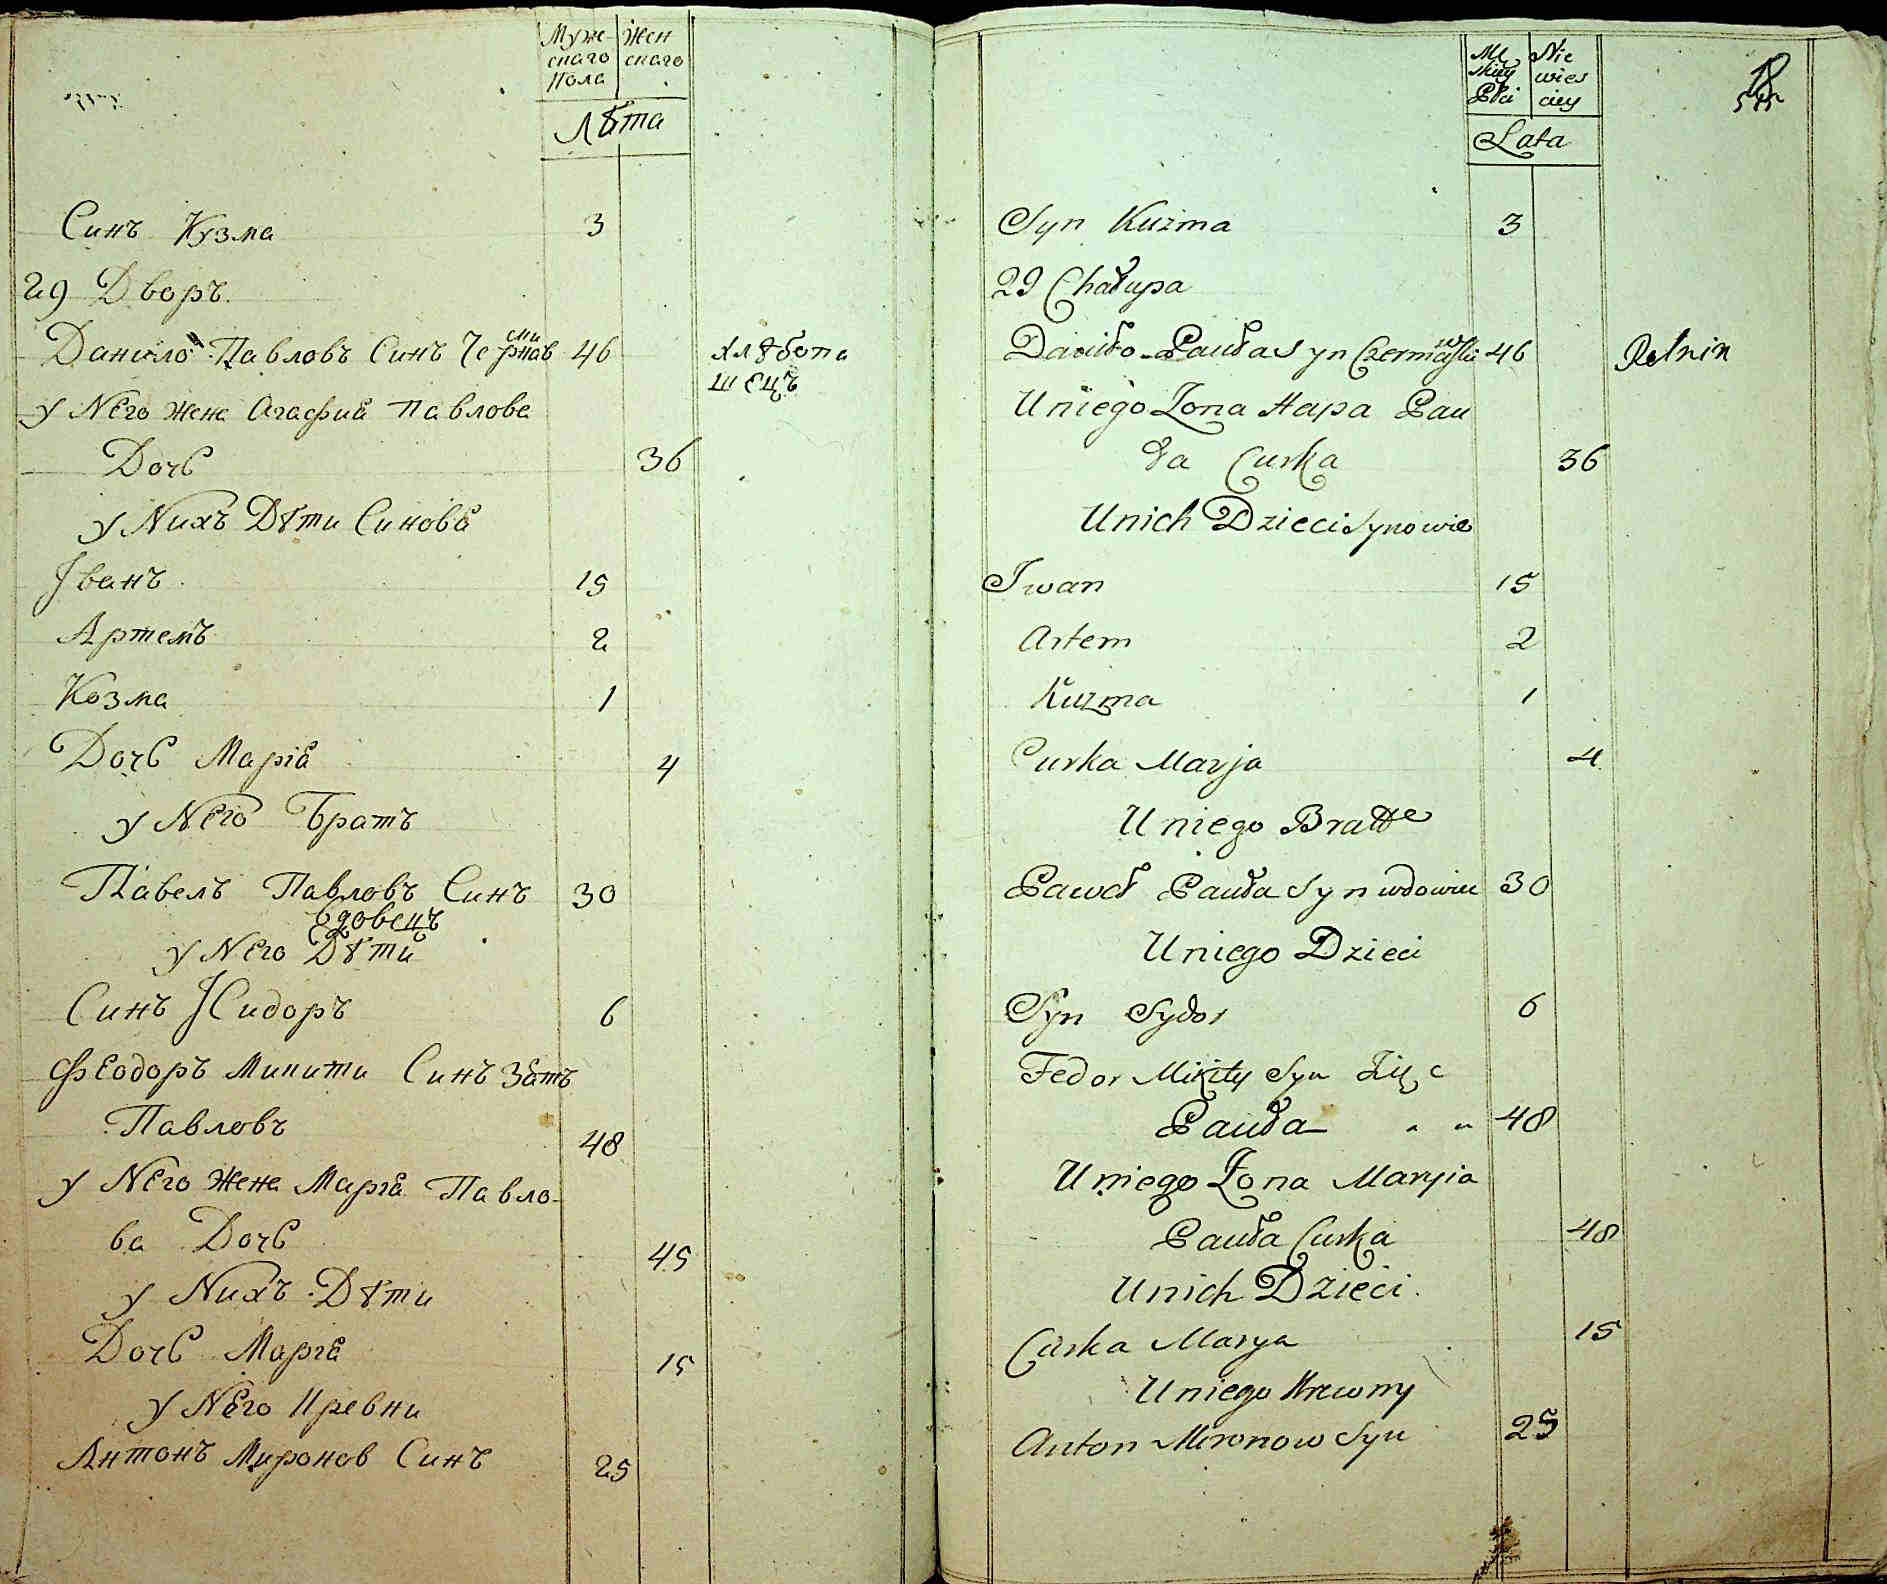 Муже- Жен
скаго скаго
Пола
Лѣта
Синъ Кузма 3
29 Дворъ
Данило Павловъ Синъ Чернавски 46 хлѣбопа
шецъ
у Него жена Агафиа Павлова
Дочь 36
у Нихъ Дѣти Синова
Іванъ 15
Артемъ 2
Козма 1
Дочь Маріа 4
у Него Братъ
Павелъ Павловъ Синъ 30
Вдовецъ
у Него Дѣти
Синъ Сидоръ 6
Феодоръ Микити Синъ Зять
Павловъ 48
у Него Жена Маріа Павло-
ва Дочь 45
у Нихъ Дѣти
Дочь Маріа 15
у Него Кревни
Антонъ Миронов Синъ 25
Mę Nie
skiey wies
Płci ciey
Lata
Syn Kuźma 3
29 Chałupa
Daniło Pauła Syn Czernawski 46 Rolnik
U niego Żona Hapa Pau
ła Curka 36
U nich Dzieci Synowie
Iwan 15
Artem 2
Kuzma 1
Curka Marja 4
U niego Brat
Paweł Pauła Syn wdowiec 30
U niego Dzieci
Syn Sydor 6
Fedor Mikity Syn Zięc
Pauła " " 48
U niego Żona Maryia
Pauła Curka 48
U nich Dzieci
Curka Marya 15
U niego Krewny
Anton Mironow Syn 25